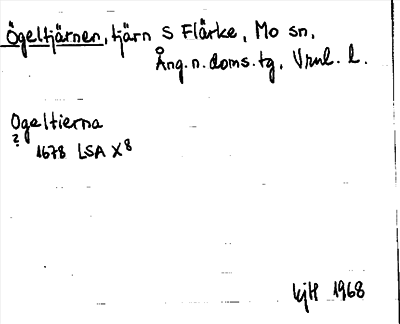 Ögeltjärnen, tjärn S Flärke, Mo sn,
Ång. n. doms. tg, Vrnl. l.
Ogeltierna
? 1678 LSA X8
kjH 1968